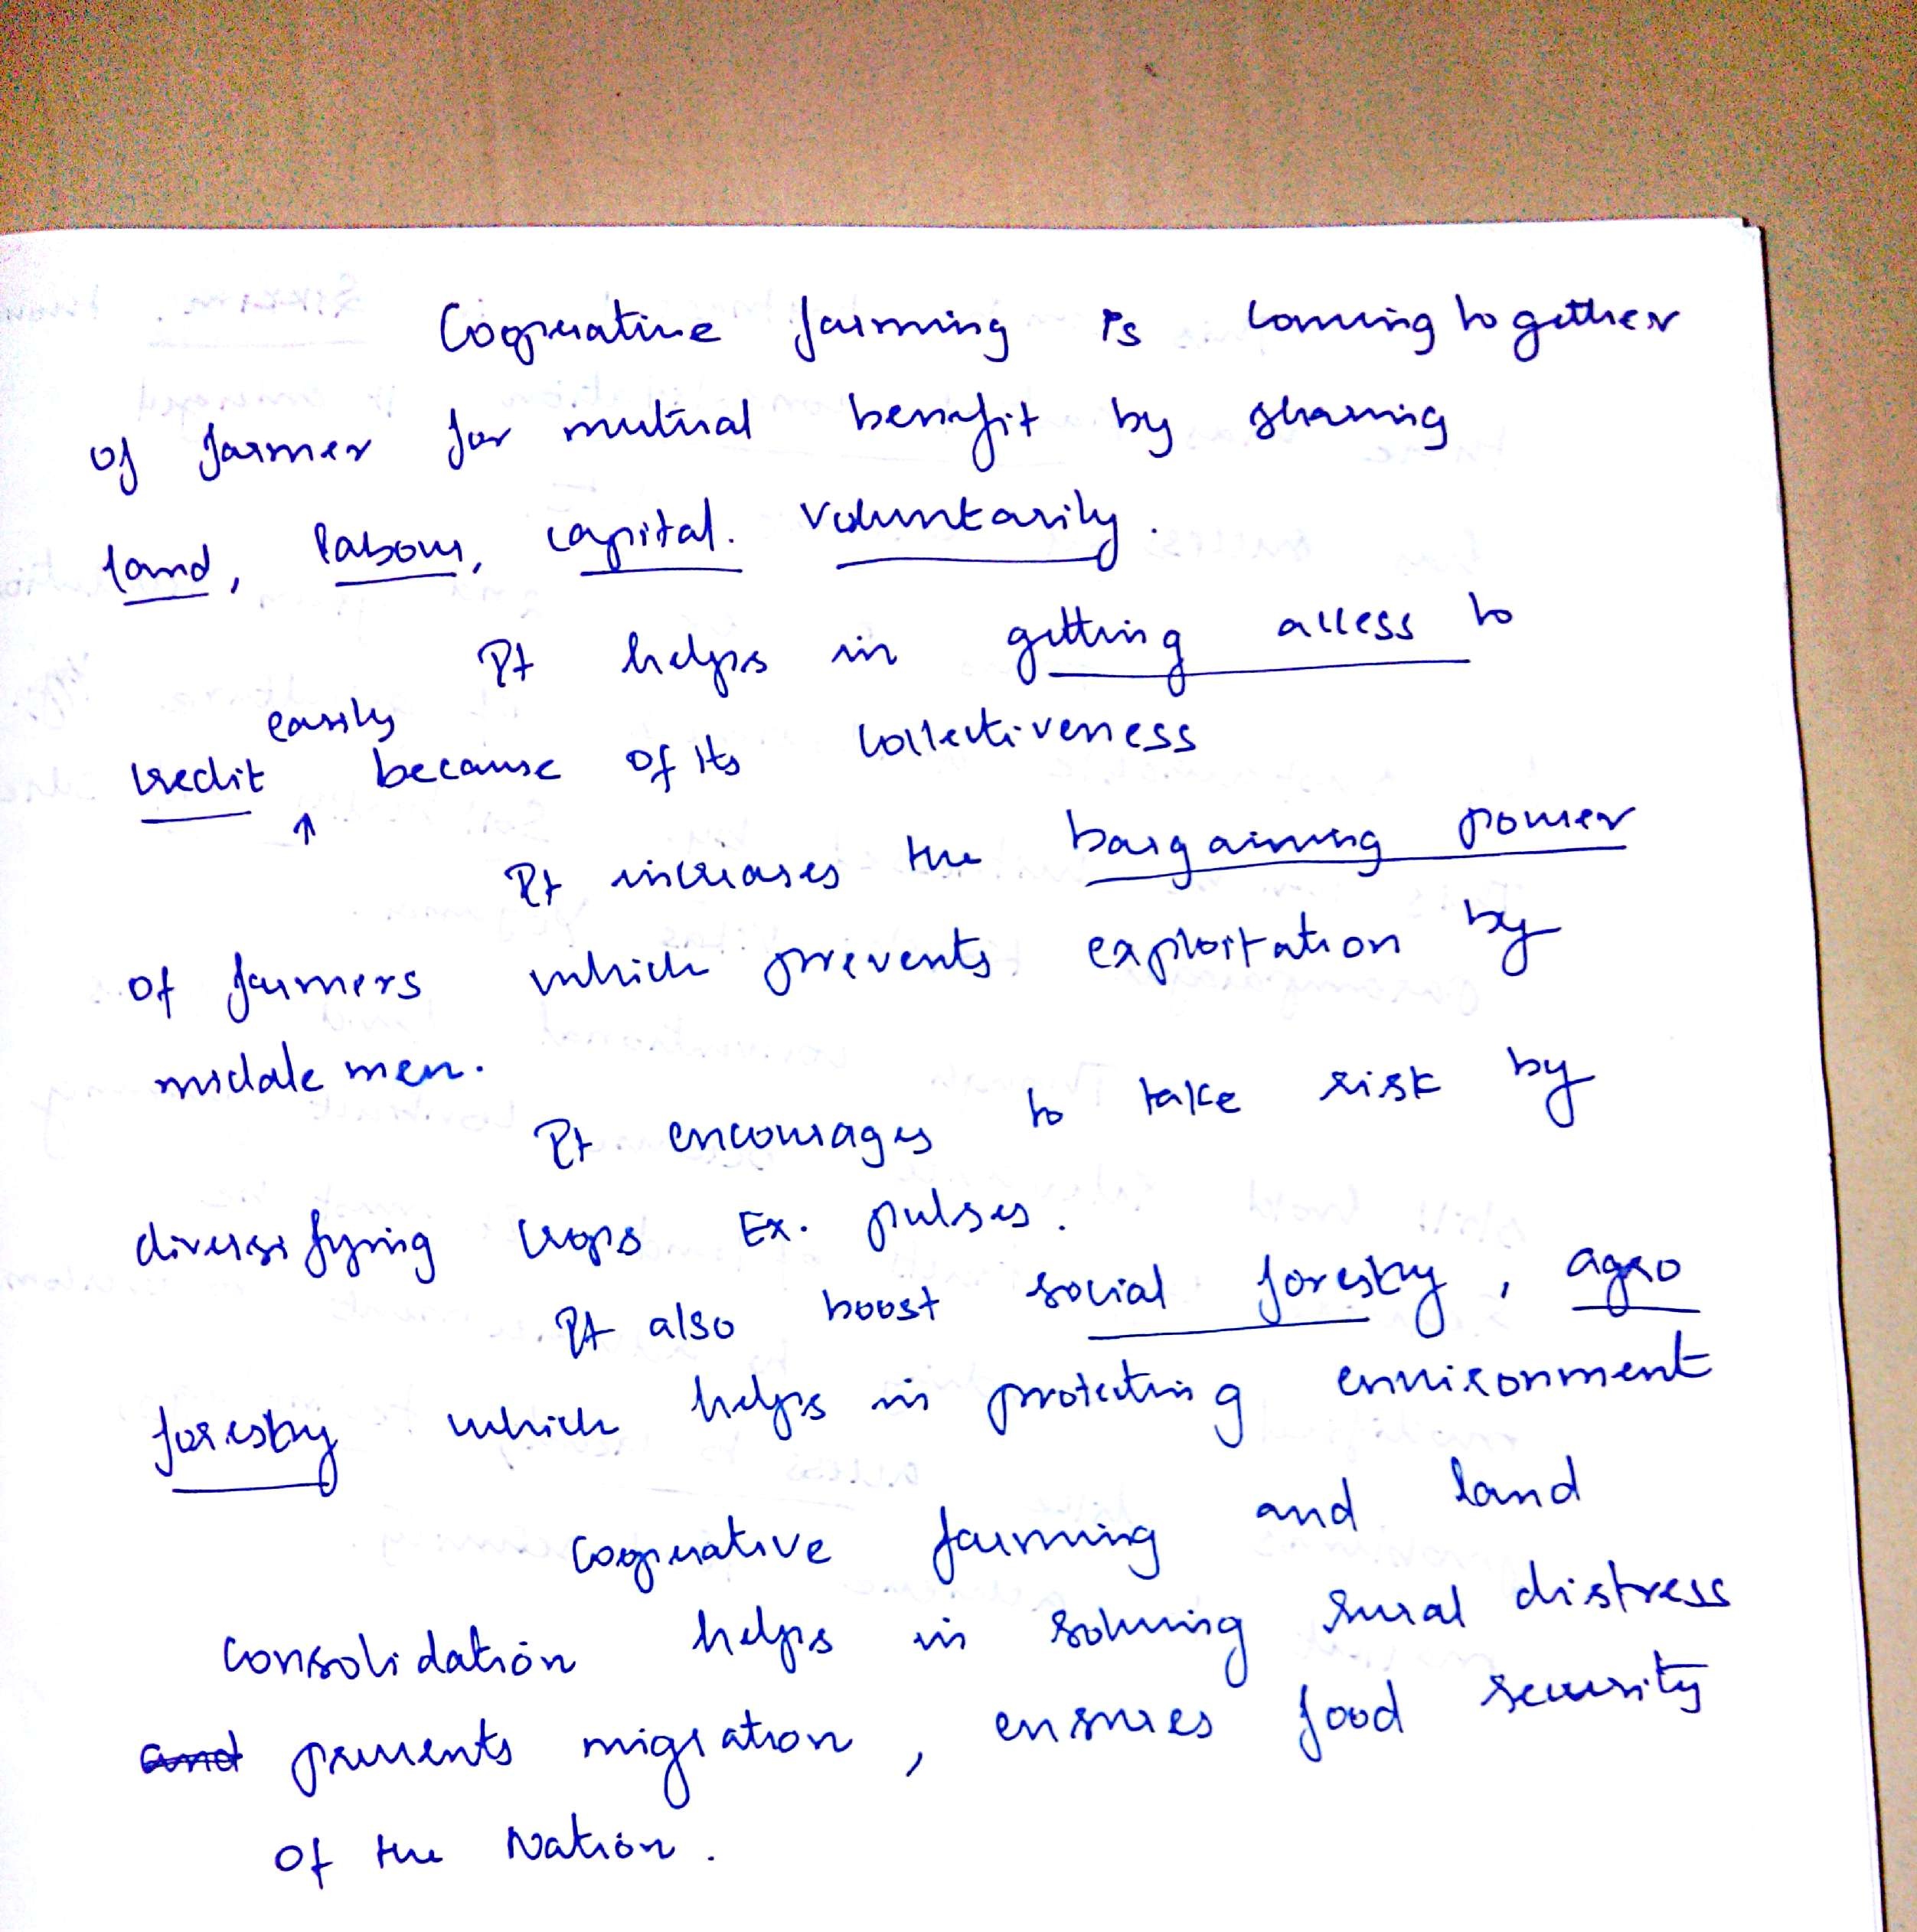 Cooperative farming is coming together
of farmer for mutual benefit by sharing
land, labour, capital. voluntarily.
It helps in getting access to
credit easily because of its collectiveness
It increases the bargaining power
of farmers which prevents exploitation by
middle men.
It encourages to take risk by
diversifying crops Ex. pulses.
It also boost social forestry, agro
forestry which helps in protecting environment
cooperative farming and land
consolidation helps in solving rural distress
and prevents migration, ensures food security
of the Nation.